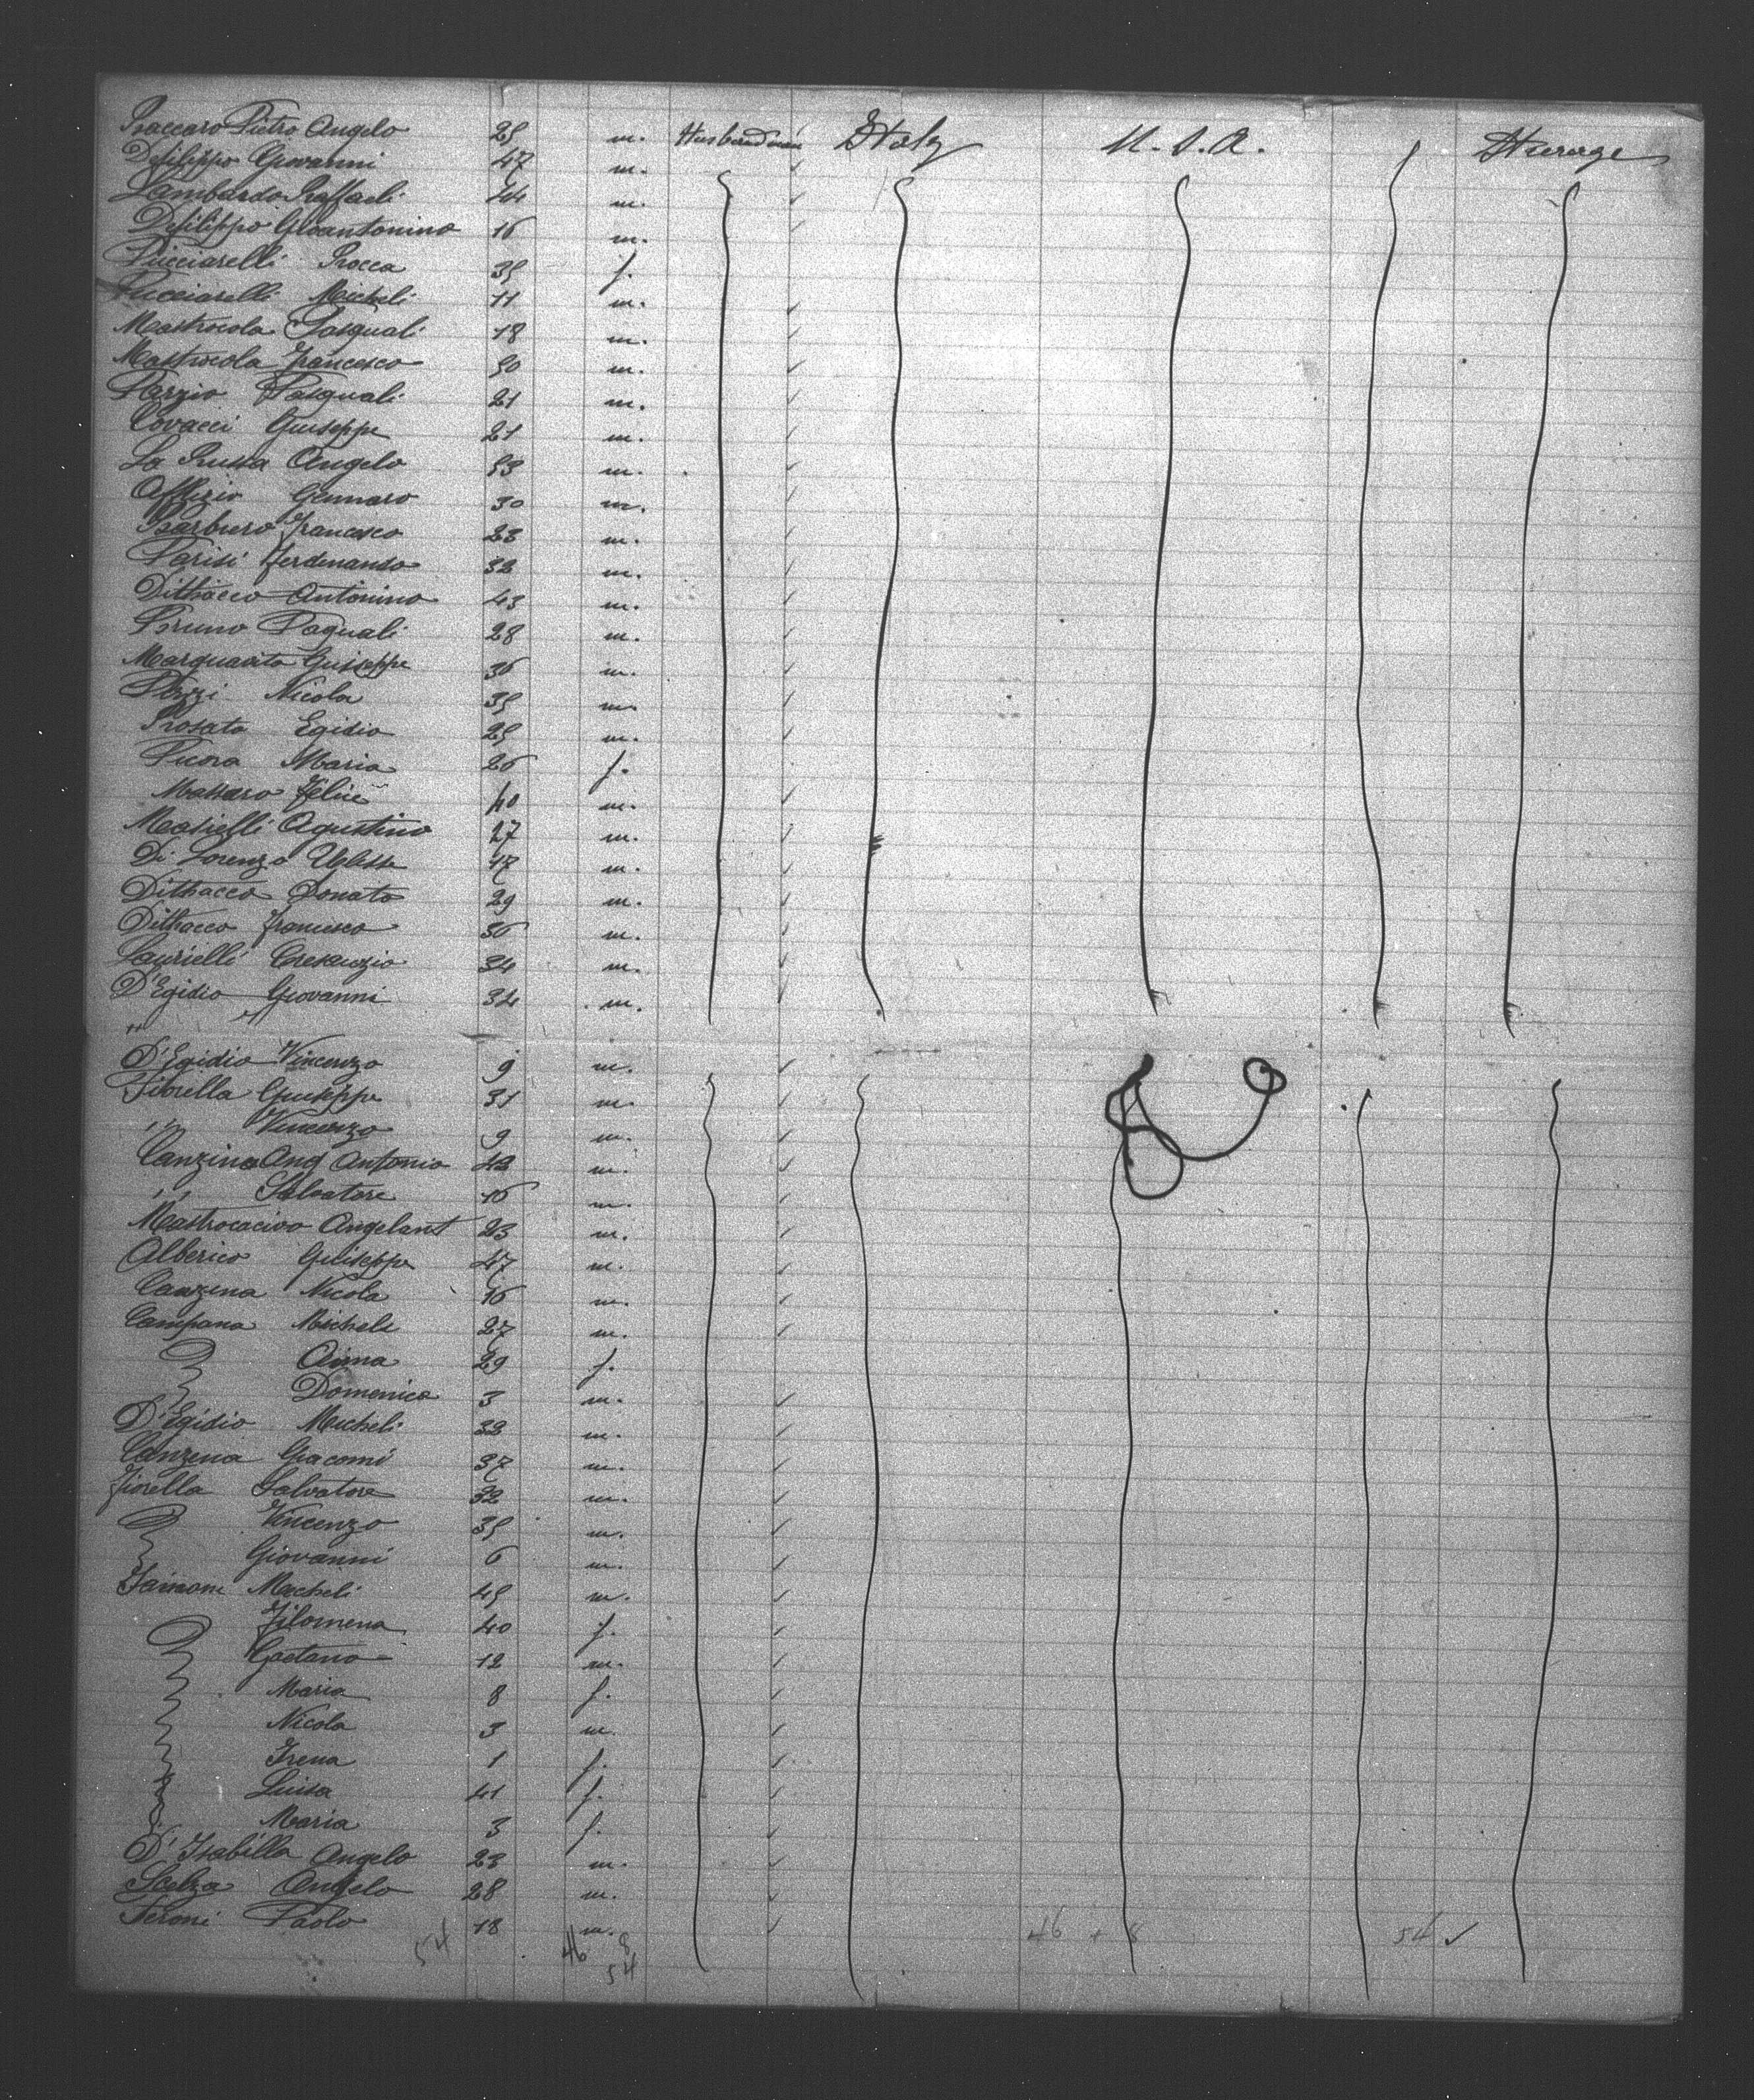 Baccaro Pietro Angelo 25 m. Husbandman Italy U.S.A. Steerage
Defilippo Giovanni 47 m.
Lombardo Raffaeli 44 m.
Defilippo Gioantonino 16 m.
Pucciarelli Rocca 35 f.
Pucciarelli Micheli 11 m.
Mastrocola Pasquali 18 m.
Mastrocola Francesco 50 m.
Parzio Pasquali 21 m.
Covacci Giuseppe 21 m.
La Russa Angelo 53 m.
Gennaro 30 m.
Barburo Francesco 23 m.
Parisi Ferdenando 32 m.
Dithacco Antonino 43 m.
Bruno Paquali 28 m.
Marquarita Guiseppe 36 m.
Pizzi Nicola 35 m.
Rosato Egidio 25 m.
Picora Maria 26 f.
Massaro Felice 40 m.
Masielli Agustino 27 m.
Di Lorenzo Ulisse 47 m.
Dithacco Donato 29 m.
Dithacco Francesco 36 m.
Laurielli Cresenzio 34 m.
D'Egidio Giovanni 34 m.
" "
D'Egidio Vincenzo 9 m.
Fiorella Guiseppe 31 m.
" " Vincenzo 9 m.
Canzina Ang Antonio 42 m.
" " Salvatore 16 m.
Mastrocacivo Angelant 23 m.
Alberico Giuseppe 47 m.
Canzena Nicola 16 m.
Campana Michele 27 m.
Anna 29 f.
Domenico 3 m.
D'Egidio Micheli 32 m.
Canzena Giacomi 37 m.
Fiorella Salvatore 32 m.
Vincenzo 35 m.
Giovanni 6 m.
Micheli 45 m.
Filomena 40 f.
Gaetano 12 m.
Maria 8 f.
Nicola 3 m.
Irena 1 f.
Luisa 41 f.
Maria 3 f.
D'Isabilla Angelo 23 m.
Scelza Angelo 28 m.
Neroni Paolo 18 m.
54 46 8 46 + 8 54 ✓
54